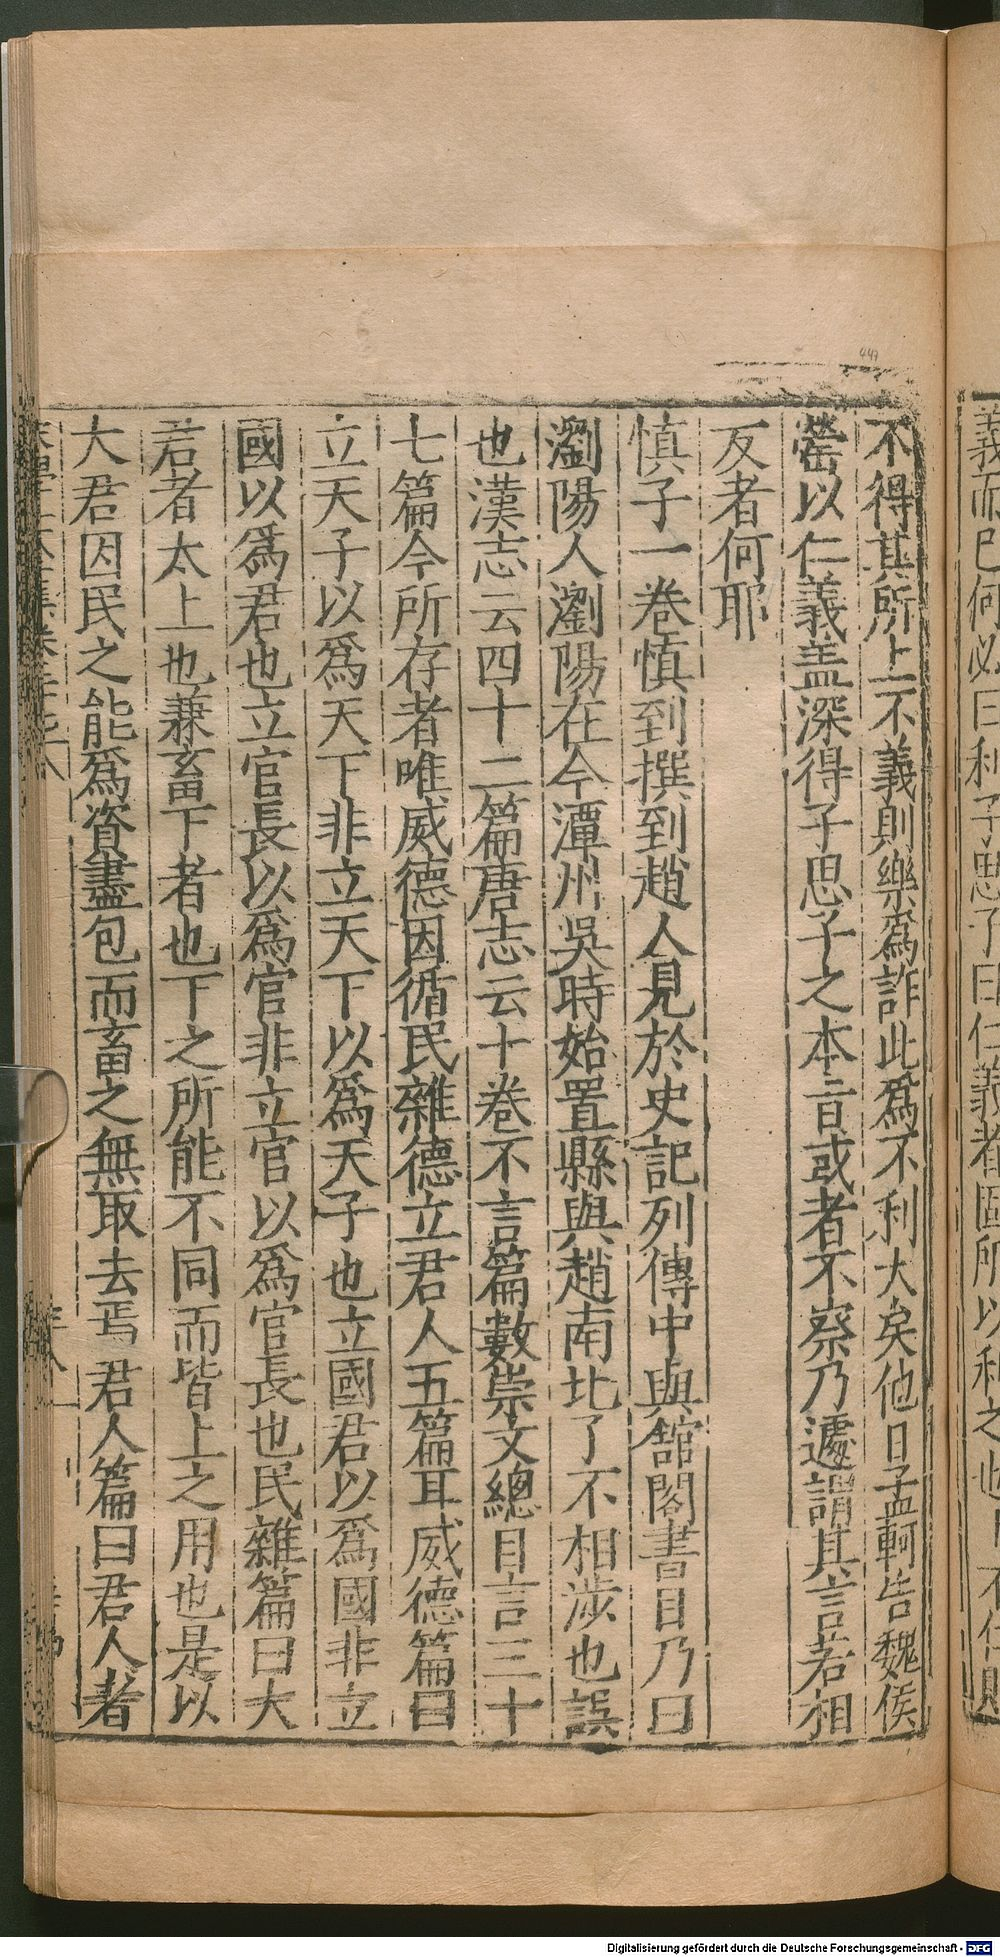 義而已何必曰利子思子曰仁義者固所以利之也上不仁則
不得其所上不義則樂爲詐此爲不利大矣他日孟軻告魏侯
罃以仁義盖深得子思子之本旨或者不察乃遽謂其言若相
反者何耶
慎子一卷慎到撰到趙人見於史記列傳中與舘閣書目乃曰
瀏陽人瀏陽在今潭州吳時始置縣與趙南北了不相涉也誤
也漢志云四十二篇唐志云十卷不言篇數崇文總目言三十
七篇今所存者唯威德因循民雜德立君人五篇耳威德篇曰
立天子以爲天下非立天下以爲天子也立國君以爲國非立
國以爲君也立官長以爲官非立官以爲官長也民雜篇曰大
君者太上也兼畜下者也下之所能不同而皆上之用也是以
大君因民之能爲資盡包而畜之無取去焉君人篇曰君人者
447
Digitalisierung gefördert durch die Deutsche Forschungsgemeinschaft - DFG